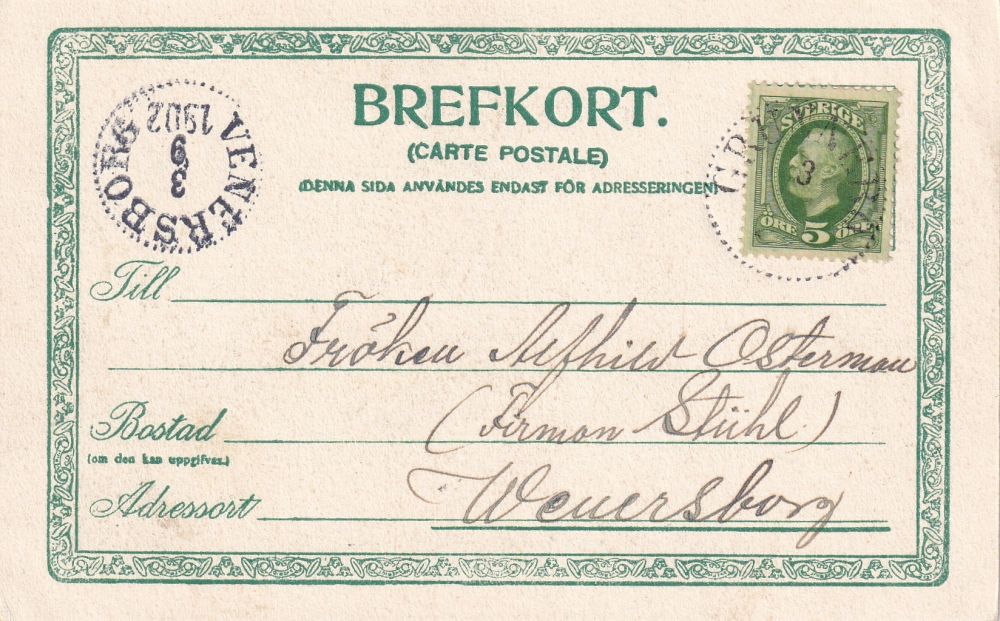 BREFKORT.
(CARTE POSTALE)
(DENNA SIDA ANVÄNDES ENDAST FÖR ADRESSERINGEN)
VENERSBORG
1902
9
3
SVERIGE
3
ÖRE 5
Till
Fröken Alfhild Osterman
(Firman Stühl)
Bostad
(om den kan uppgifvas.)
Adressort
Wenersborg